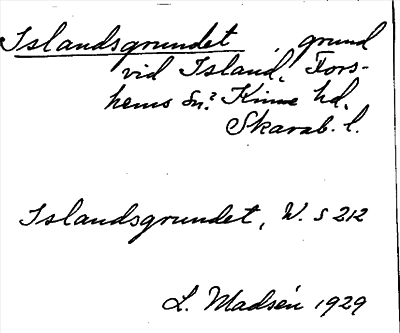 Islandsgrundet, grund
vid Island, Fors-
hems sn? Kinne hd.
Skarab. l.
Islandsgrundet, W. s 212
L. Madsén 1929